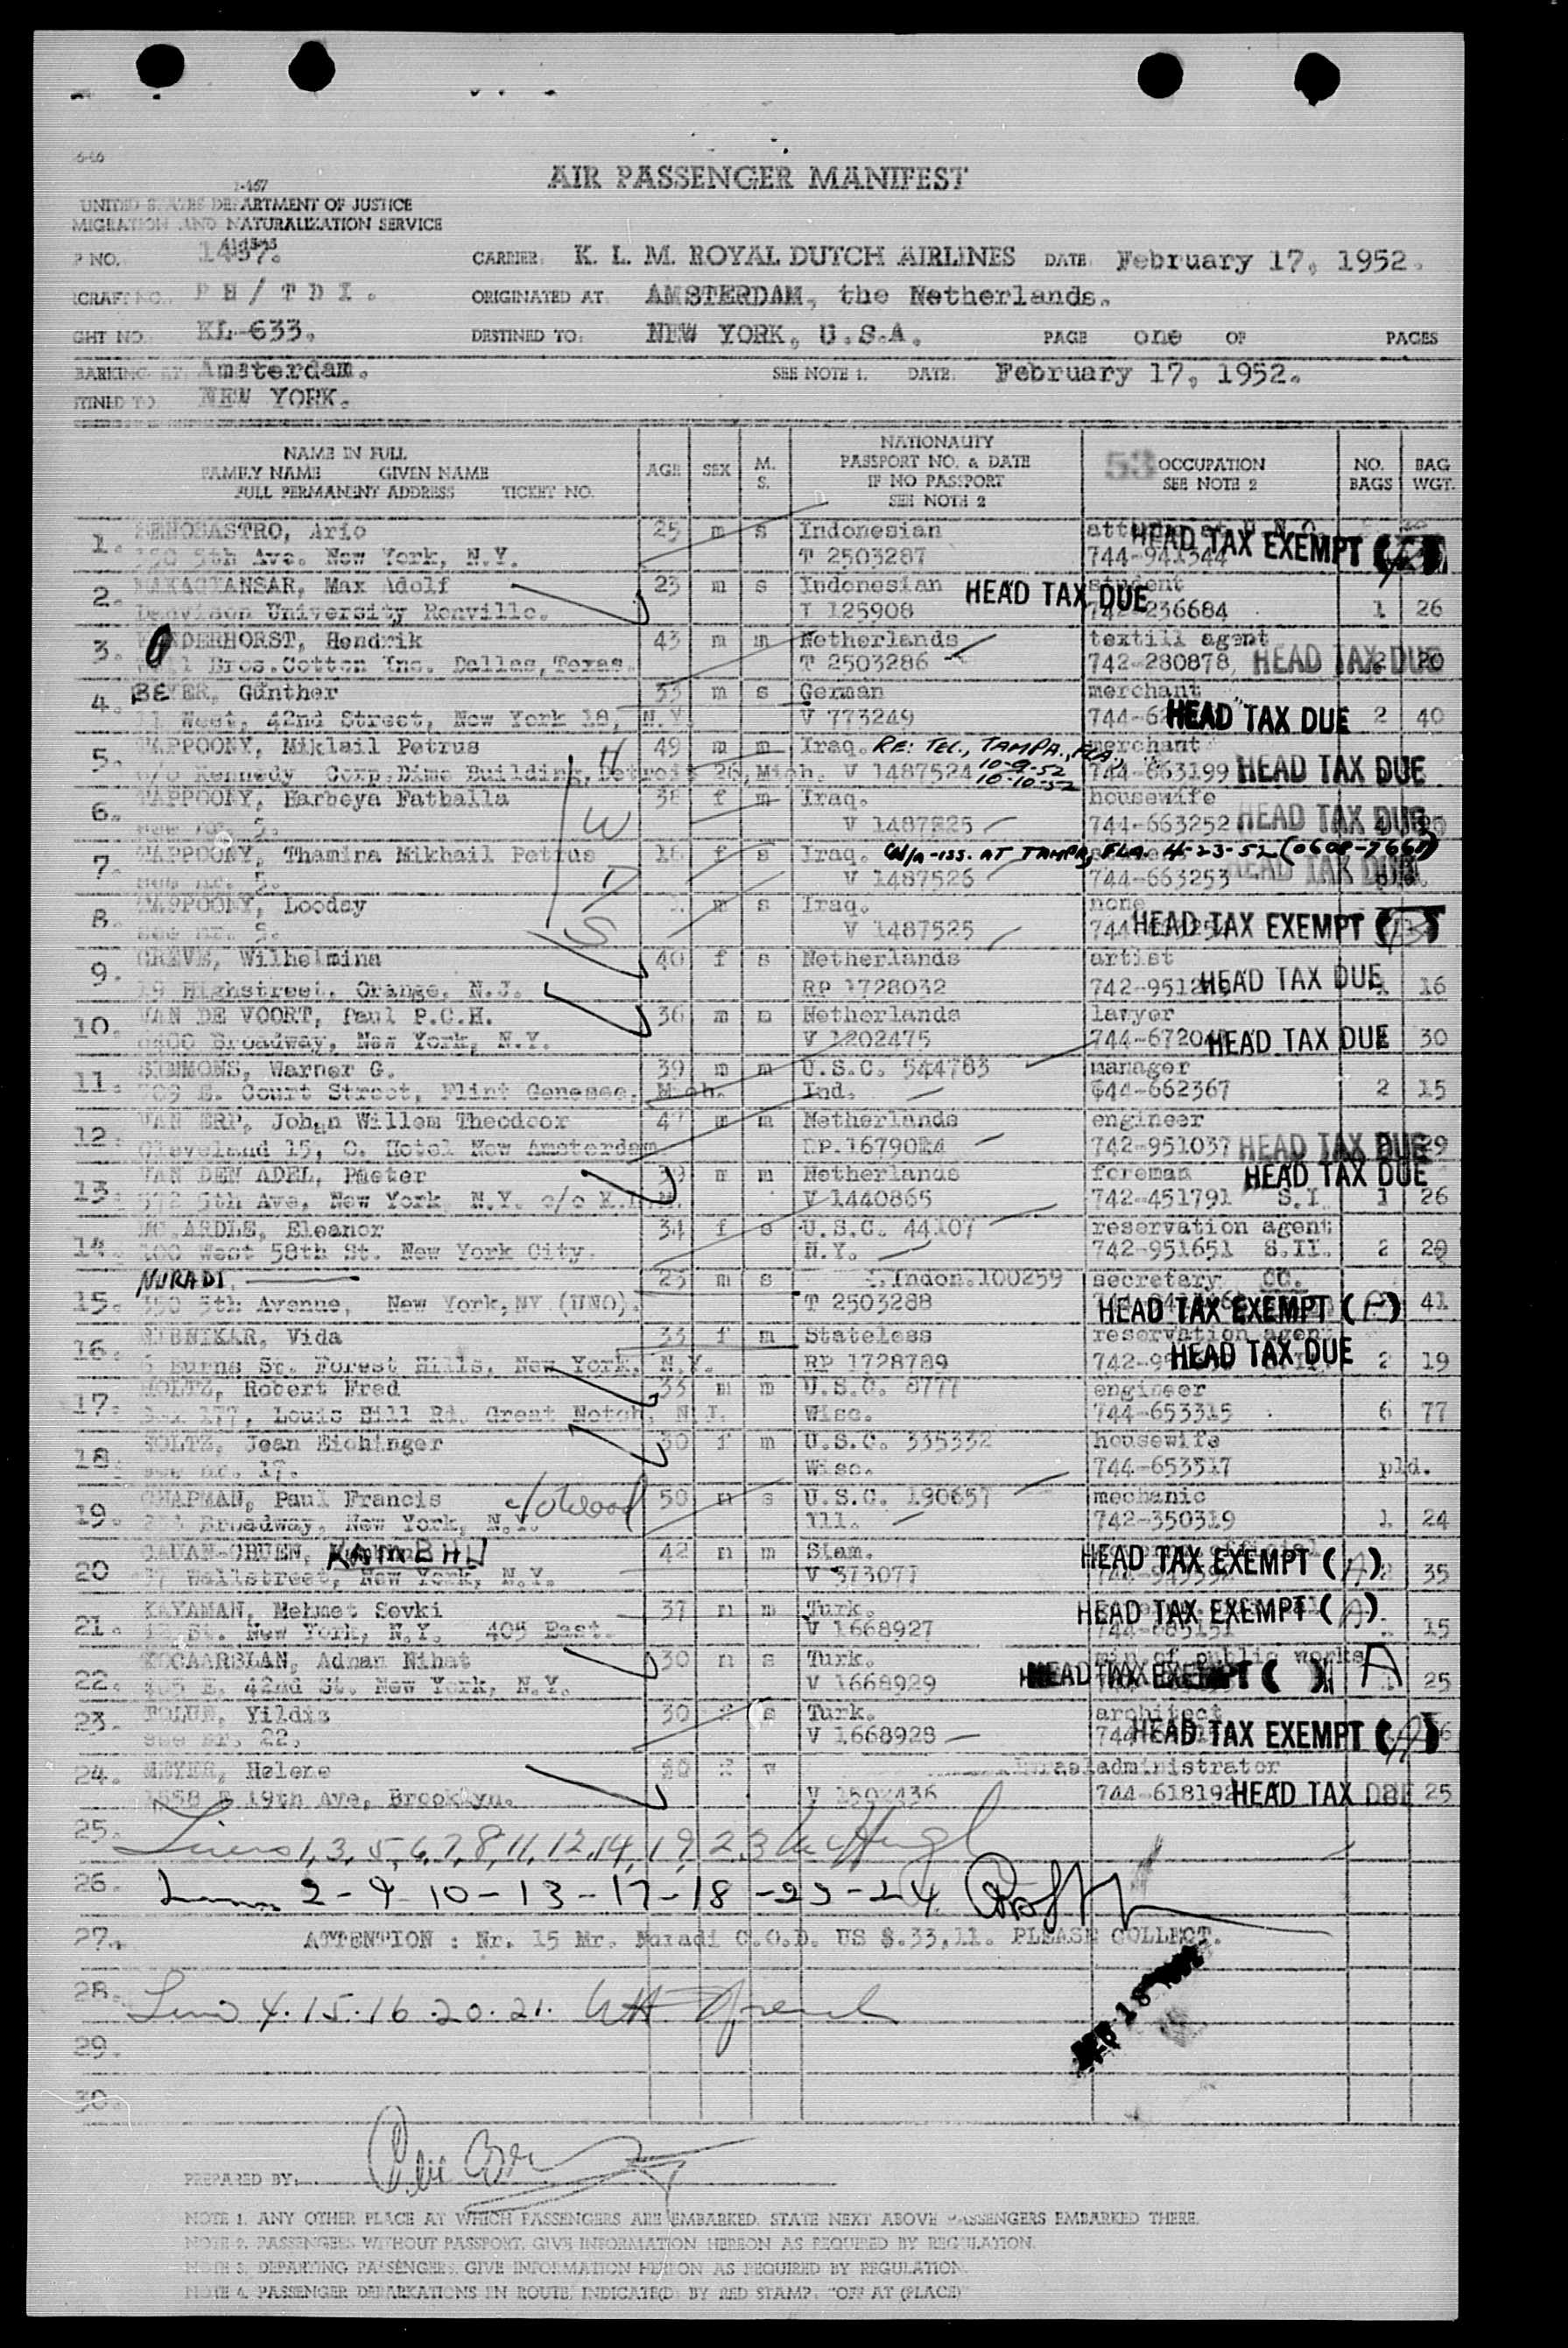 AIR PASSENGER MANIFEST
I-467
UNITED STATES DEPARTMENT OF JUSTICE
MIGRATION AND NATURALIZATION SERVICE
P NO. CARRIER: K. L. M. ROYAL DUTCH AIRLINES DATE: February 17, 1952.
RCRAFT NO. PH/TDI. ORIGINATED AT AMSTERDAM, the Netherlands.
GHT NO. KL-633. DESTINED TO: NEW YORK, U.S.A. PAGE one OF PAGES
BARKING AT Amsterdam. SEE NOTE 1. DATE: February 17, 1952.
TINED TO NEW YORK.
NAME IN FULL
FAMILY NAME GIVEN NAME
FULL PERMANENT ADDRESS TICKET NO.
AGE SEX M. S.
NATIONALITY
PASSPORT NO. & DATE
IF NO PASSPORT
SEE NOTE 2
53 OCCUPATION
SEE NOTE 2
NO. BAGS
BAG WGT.
1. Ario 25 m s Indonesian HEAD TAX EXEMPT
5th Ave. New York, N.Y. T 2503287 744-941344
2. MAKAGIANSAR, Max Adolf 23 m s Indonesian student HEAD TAX DUE
University T 125908 742-236684 1 26
3. Hendrik 43 m m Netherlands textill agent
Bros. Cotton Inc. Dallas, Texas. T 2503286 742-280878, HEAD TAX DUE 20
4. BEYER, Günther m s German merchant
11 West, 42nd Street, New York 18, N.Y. V 773249 HEAD TAX DUE 2 40
5. TAPPOONY, Miklail Petrus 49 m m Iraq. RE: TEL., TAMPA, FLA., merchant
10-9-52
10-10-52
c/o Kennedy Corp. Dime Building, Detroit 26, Mich. V 1487524 744-663199 HEAD TAX DUE
6. TAPPOONY, Harbeya Fathalla 38 f m Iraq. housewife
see nr. 5. V 1487525 744-663252 HEAD TAX DUE
7. TAPPOONY, Thamina Mikhail Petrus 16 f s Iraq. W/A-ISS. AT TAMPA, FLA. 4-23-52
see nr. 5. V 1487526 744-663253 HEAD TAX DUE
8. TAPPOONY, Looday m s Iraq. none
see nr. 5. V 1487525 HEAD TAX EXEMPT
9. GREVE, Wilhelmina 40 f s Netherlands artist
19 Highstreet, Orange, N.J. RP 1728032 HEAD TAX DUE 16
10. VAN DE VOORT, Paul P.C.H. 36 m m Netherlands lawyer
Broadway, New York, N.Y. V 1202475 HEAD TAX DUE 30
11. SIMMONS, Warner G. 39 m m U.S.C. 544783 manager
709 E. Court Street, Flint Genesee, Mich. Ind. 644-662367 2 15
12. VAN ERP, Johan Willem Theodoor 47 m m Netherlands engineer
Cleveland 15, O. Hotel New Amsterdam 742-951037 HEAD TAX DUE 29
13. VAN DEN ADEL, Pieter 39 m m Netherlands foreman HEAD TAX DUE
572 5th Ave, New York N.Y. c/o K.L.M. V 1440865 742-451791 S.I. 1 26
14. MC.ARDLE, Eleanor 34 f s U.S.C. 44107 reservation agent
100 West 58th St. New York City. N.Y. 742-951651 S.II. 2 20
15. NURADI. m s Indon. 100259 secretary CC.
350 5th Avenue, New York, NY (UNO). T 2503288 HEAD TAX EXEMPT (A) 41
16. Vida 33 f m Stateless reservation agent
6 Burns St. Forest Hills, New York, N.Y. RP 1728789 HEAD TAX DUE 2 19
17. HOLTZ, Robert Fred 33 m m U.S.C. 8777 engineer
Box 177, Louis Hill Rd. Great Notch, N.J. Wisc. 744-653315 6 77
18. HOLTZ, Jean Eichinger 30 f m U.S.C. 335332 housewife
see nr. 17. Wisc. 744-653317 pld.
19. CHAPMAN, Paul Francis 50 m s U.S.C. 190657 mechanic
Broadway, New York, N.Y. Ill. 742-350319 1 24
20 KAMBHU 42 m m Siam. HEAD TAX EXEMPT (A)
Wallstreet, New York, N.Y. V 373077 35
21. KAYAMAN, Mehmet Sevki 37 m m Turk. HEAD TAX EXEMPT (A)
St. New York, N.Y. 405 East. V 1668927 744-685151 15
22. KOCAARSLAN, Adnan Nihat 30 m s Turk. min of public works
405 E. 42nd St. New York, N.Y. V 1668929 HEAD TAX EXEMPT ( ) A 25
23. Yildiz 30 f s Turk. architect
see nr. 22. V 1668928 HEAD TAX EXEMPT (A)
24. MEYER, Helene f w Israel administrator
19th Ave, Brooklyn. 744-618192 HEAD TAX DUE 25
25. Lines 1, 3, 5, 6, 7, 8, 11, 12, 14, 19, 23
26. Lines 2-9-10-13-17-18-22-24
27. ATTENTION : Nr. 15 Mr. Nuradi C.O.D. US $.33,11. PLEASE COLLECT.
28. Lines 4.15.16.20.21.
29.
30.
PREPARED BY:
NOTE 1. ANY OTHER PLACE AT WHICH PASSENGERS ARE EMBARKED, STATE NEXT ABOVE PASSENGERS EMBARKED THERE.
NOTE 2. PASSENGERS WITHOUT PASSPORT, GIVE INFORMATION HEREON AS REQUIRED BY REGULATION.
NOTE 3. DEPARTING PASSENGERS, GIVE INFORMATION HEREON AS REQUIRED BY REGULATION.
NOTE 4. PASSENGER DEBARKATIONS EN ROUTE INDICATE(D) BY RED STAMP, "OFF AT (PLACE)"